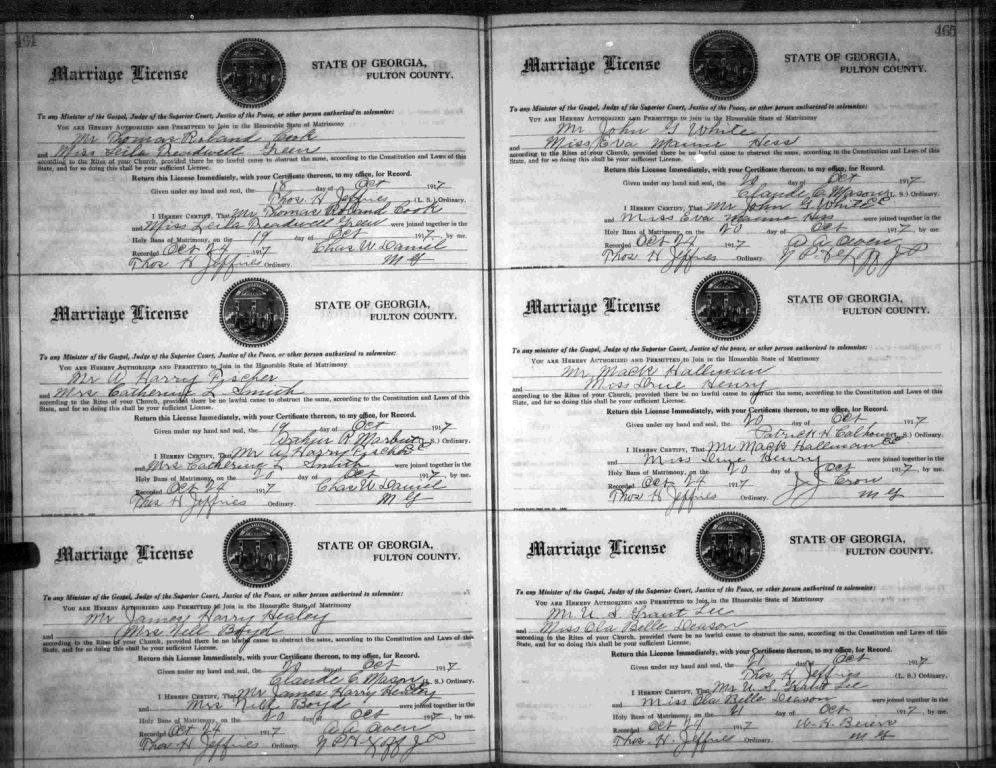 464
Marriage License
STATE OF GEORGIA,
FULTON COUNTY.
To any Minister of the Gospel, Judge of the Superior Court, Justice of the Peace, or other person authorized to solemnize:
YOU ARE HEREBY AUTHORIZED AND PERMITTED to Join in the Honorable State of Matrimony
Mr Thomas Roland Cook
and Miss Leila Treadwell Green
according to the Rites of your Church, provided there be no lawful cause to obstruct the same, according to the Constitution and Laws of this
State, and for so doing this shall be your sufficient License.
Return this License Immediately, with your Certificate thereon, to my office, for Record.
Given under my hand and seal, the 18 day of Oct 1917
Thos. H Jeffries (L. S.) Ordinary.
I HEREBY CERTIFY, That Mr Thomas Roland Cook
and Miss Leila Treadwell Green were joined together in the
Holy Bans of Matrimony, on the 19 day of Oct 1917, by me.
Recorded Oct 24 1917 Chas W. Daniel
Thos H Jeffries Ordinary. M G
Marriage License
STATE OF GEORGIA,
FULTON COUNTY.
To any Minister of the Gospel, Judge of the Superior Court, Justice of the Peace, or other person authorized to solemnize:
YOU ARE HEREBY AUTHORIZED AND PERMITTED to Join in the Honorable State of Matrimony
Mr W Harry Fischer
and Mrs Catherine L Smith
according to the Rites of your Church, provided there be no lawful cause to obstruct the same, according to the Constitution and Laws of this
State, and for so doing this shall be your sufficient License.
Return this License Immediately, with your Certificate thereon, to my office, for Record.
Given under my hand and seal, the 19 day of Oct 1917
R. Ordinary.
I HEREBY CERTIFY, That Mr W Harry Fischer
and Mrs Catherine L Smith were joined together in the
Holy Bans of Matrimony, on the 20 day of Oct 1917, by me.
Recorded Oct 24 1917 Chas W Daniel
Thos H Jeffries Ordinary. M G
Marriage License
STATE OF GEORGIA,
FULTON COUNTY.
To any Minister of the Gospel, Judge of the Superior Court, Justice of the Peace, or other person authorized to solemnize:
YOU ARE HEREBY AUTHORIZED AND PERMITTED to Join in the Honorable State of Matrimony
Mr James Harry Healey
and Mrs Boyd
according to the Rites of your Church, provided there be no lawful cause to obstruct the same, according to the Constitution and Laws of this
State, and for so doing this shall be your sufficient License.
Return this License Immediately, with your Certificate thereon, to my office, for Record.
Given under my hand and seal, the 20 day of Oct 1917
Claude C Mason (L. S.) Ordinary.
I HEREBY CERTIFY, That Mr James Harry Healey
and Mrs Boyd were joined together in the
Holy Bans of Matrimony, on the 20 day of Oct 1917, by me.
Recorded Oct 24 1917 Owen
Thos H Jeffries Ordinary.
465
Marriage License
STATE OF GEORGIA,
FULTON COUNTY.
To any Minister of the Gospel, Judge of the Superior Court, Justice of the Peace, or other person authorized to solemnize:
YOU ARE HEREBY AUTHORIZED AND PERMITTED to Join in the Honorable State of Matrimony
Mr John G White
and Miss Eva Mamie Hess
according to the Rites of your Church, provided there be no lawful cause to obstruct the same, according to the Constitution and Laws of this
State, and for so doing this shall be your sufficient License.
Return this License Immediately, with your Certificate thereon, to my office, for Record.
Given under my hand and seal, the 20 day of Oct 1917
Claude C Mason (L. S.) Ordinary.
I HEREBY CERTIFY, That Mr John G White
and Miss Eva Mamie Hess were joined together in the
Holy Bans of Matrimony, on the 20 day of Oct 1917, by me.
Recorded Oct 24 1917 Owen
Thos. H Jeffries Ordinary.
Marriage License
STATE OF GEORGIA,
FULTON COUNTY.
To any minister of the Gospel, Judge of the Superior Court, Justice of the peace, or other person authorized to solemnize:
YOU ARE HEREBY AUTHORIZED AND PERMITTED to Join in the Honorable State of Matrimony
Mr Mack Hallman
and Miss Henry
according to the Rites of your Church, provided there be no lawful cause to obstruct the same, according to the Constitution and Laws of this
State, and for so doing this shall be your sufficient License.
Return this License Immediately, with your Certificate thereon, to my office, for Record.
Given under my hand and seal, the 20 day of Oct 1917
Patrick H Calhoun S.) Ordinary.
I HEREBY CERTIFY, That Mr Mack Hallman
and Miss Henry were joined together in the
Holy Bans of Matrimony, on the 20 day of Oct 1917, by me.
Recorded Oct 24 1917 J J Crow
Thos H Jeffries Ordinary. M G
Marriage License
STATE OF GEORGIA,
FULTON COUNTY.
To any Minister of the Gospel, Judge of the Superior Court, Justice of the Peace, or other person authorized to solemnize:
YOU ARE HEREBY AUTHORIZED AND PERMITTED to Join in the Honorable State of Matrimony
Mr U S Grant Lee
and Miss Ola Belle Deason
according to the Rites of your Church, provided there be no lawful cause to obstruct the same, according to the Constitution and Laws of this
State, and for so doing this shall be your sufficient License.
Return this License Immediately, with your Certificate thereon, to my office, for Record.
Given under my hand and seal, the 21 day of Oct 1917
Thos H Jeffries (L. S.) Ordinary.
I HEREBY CERTIFY, That Mr U S Grant Lee
and Miss Ola Belle Deason were joined together in the
Holy Bans of Matrimony, on the 21 day of Oct 1917, by me.
Recorded Oct 24 1917 W. H.
Thos. H. Jeffries Ordinary. M G